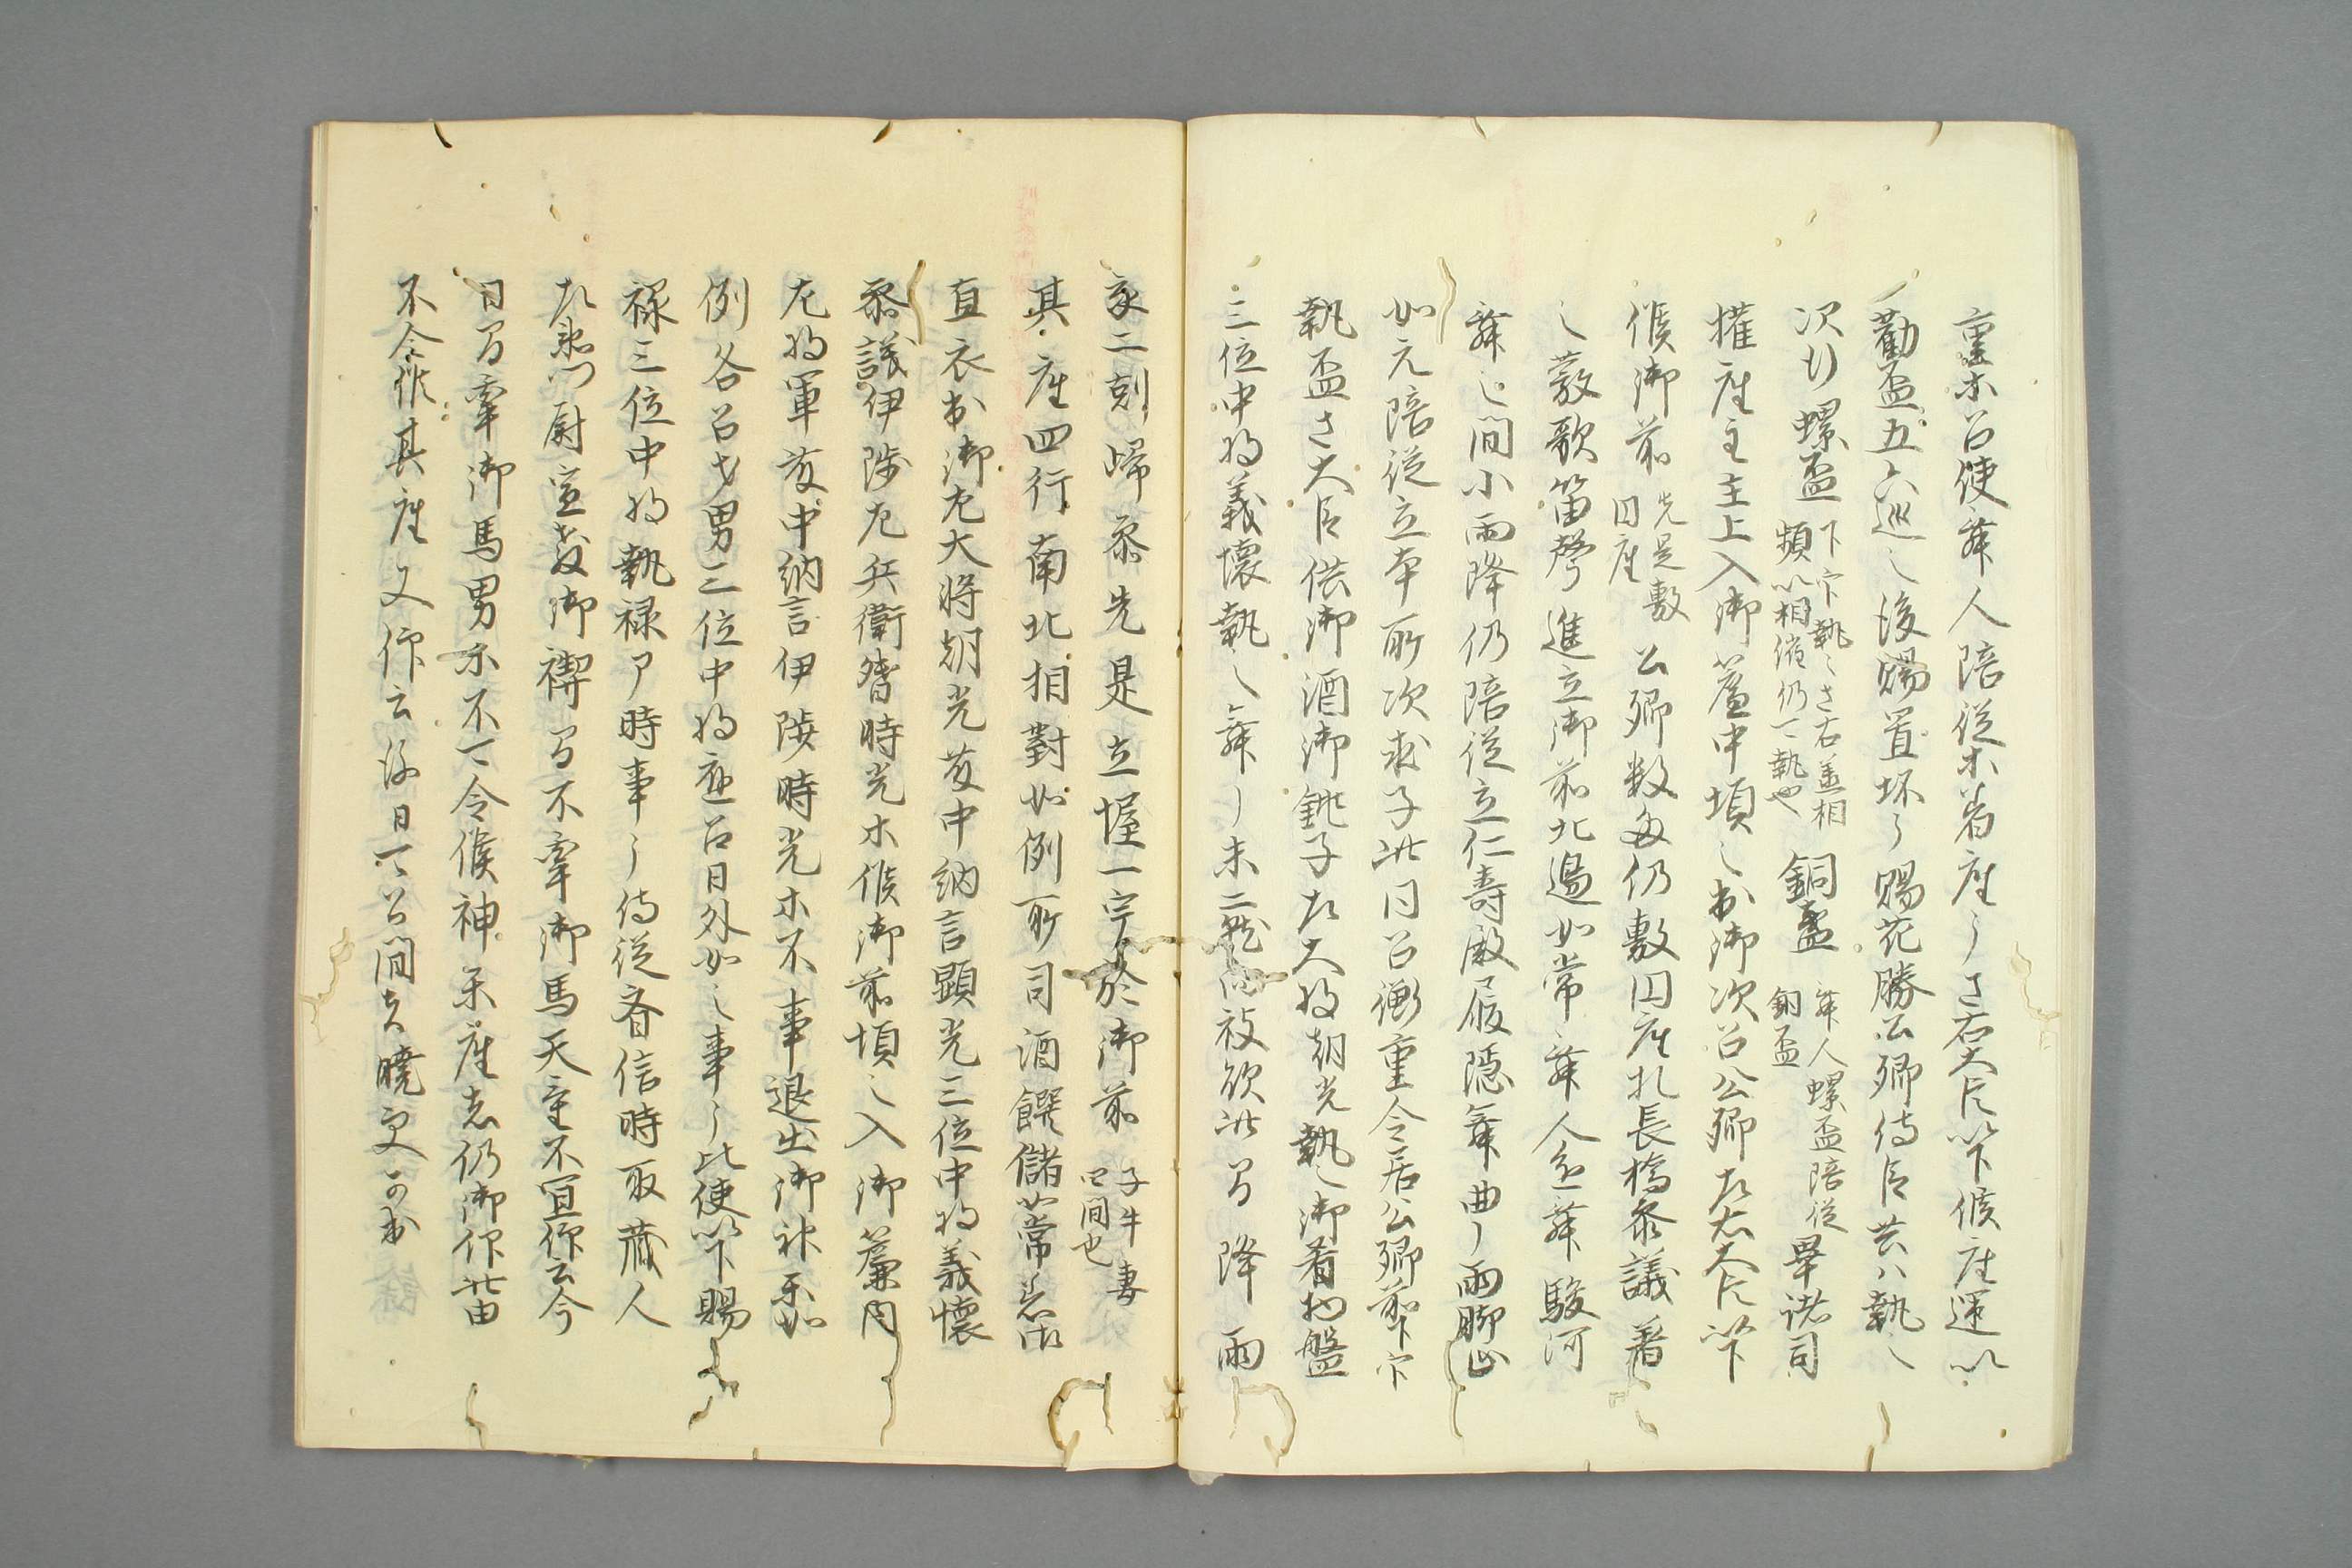 重木召使舞人陪従木着座了左右大臣以下候座運以
勧盃五六巡之後賜置坏了賜花勝公卿侍臣共以執之
次行螺盃 下官執之左右並相
頻以相催仍一執也 銅盞 舞人螺盃陪従
銅盃 畢諸司
撤座主主上入御簾中頃之出御次召公卿左右大臣以下
候御前 先是敷
円座 公卿数多仍敷円座於長橋参議着
之発歌笛聲進立御前北邊如常舞人迄舞駿河
舞之間小雨降仍陪従立仁寿殿履隠舞曲了雨脚止
如元陪従立本所次求子此日召衝重令居公卿前下官
執盃左大臣供御酒御銚子左大将朝光執之御肴物盤
三位中将義懐執之舞了未二剋被欲此間降雨
亥二刻帰参先是立握一宇於御前 子牛妻
四間也
其座四行南北相對如例所司酒饌儲如常
直衣出御左大将朝光左中納言顕光三位中将義懐
参議伊陟左兵衛督時光木候御前頃之入御簾内
左将軍左中納言伊陟時光木不事退出御神楽如
例各召才男三位中将迄召日外如之事了比使以下賜
禄三位中将執禄了時事了侍従斉信時取蔵人
左衛門尉宣孝御禊間不牽御馬天意不宜仰云今
日間牽御馬男不可令候神楽座者仍御仰此由
不令作其座又仰云後日可召問者暁更